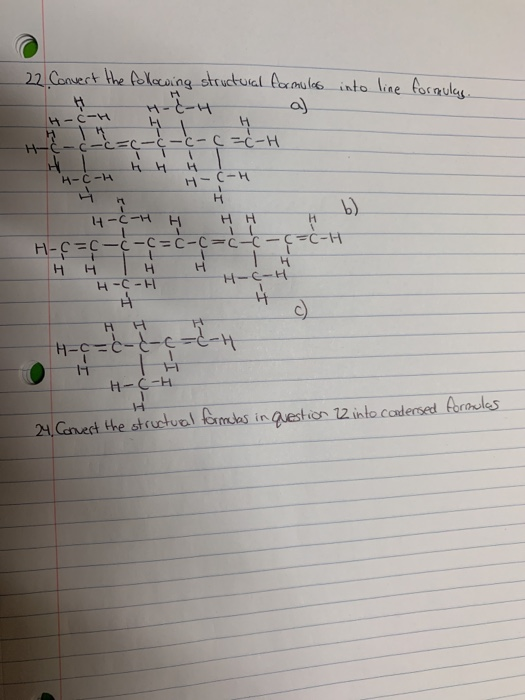 22. Convert the following structural formulas into line formulas.
a)
H H
H-C-H H-C-H
H H H H
H-C-C-C=C-C-C-C=C-H
H H H H
H-C-H H-C-H
H H
b)
H
H-C-H H H H H
H-C=C-C-C=C-C=C-C-C=C-H
H H H H H
H-C-H H-C-H
H H
c)
H H H
H-C=C-C-C=C-H
H H
H-C-H
H
24. Convert the structural formulas in question 22 into condensed formulas